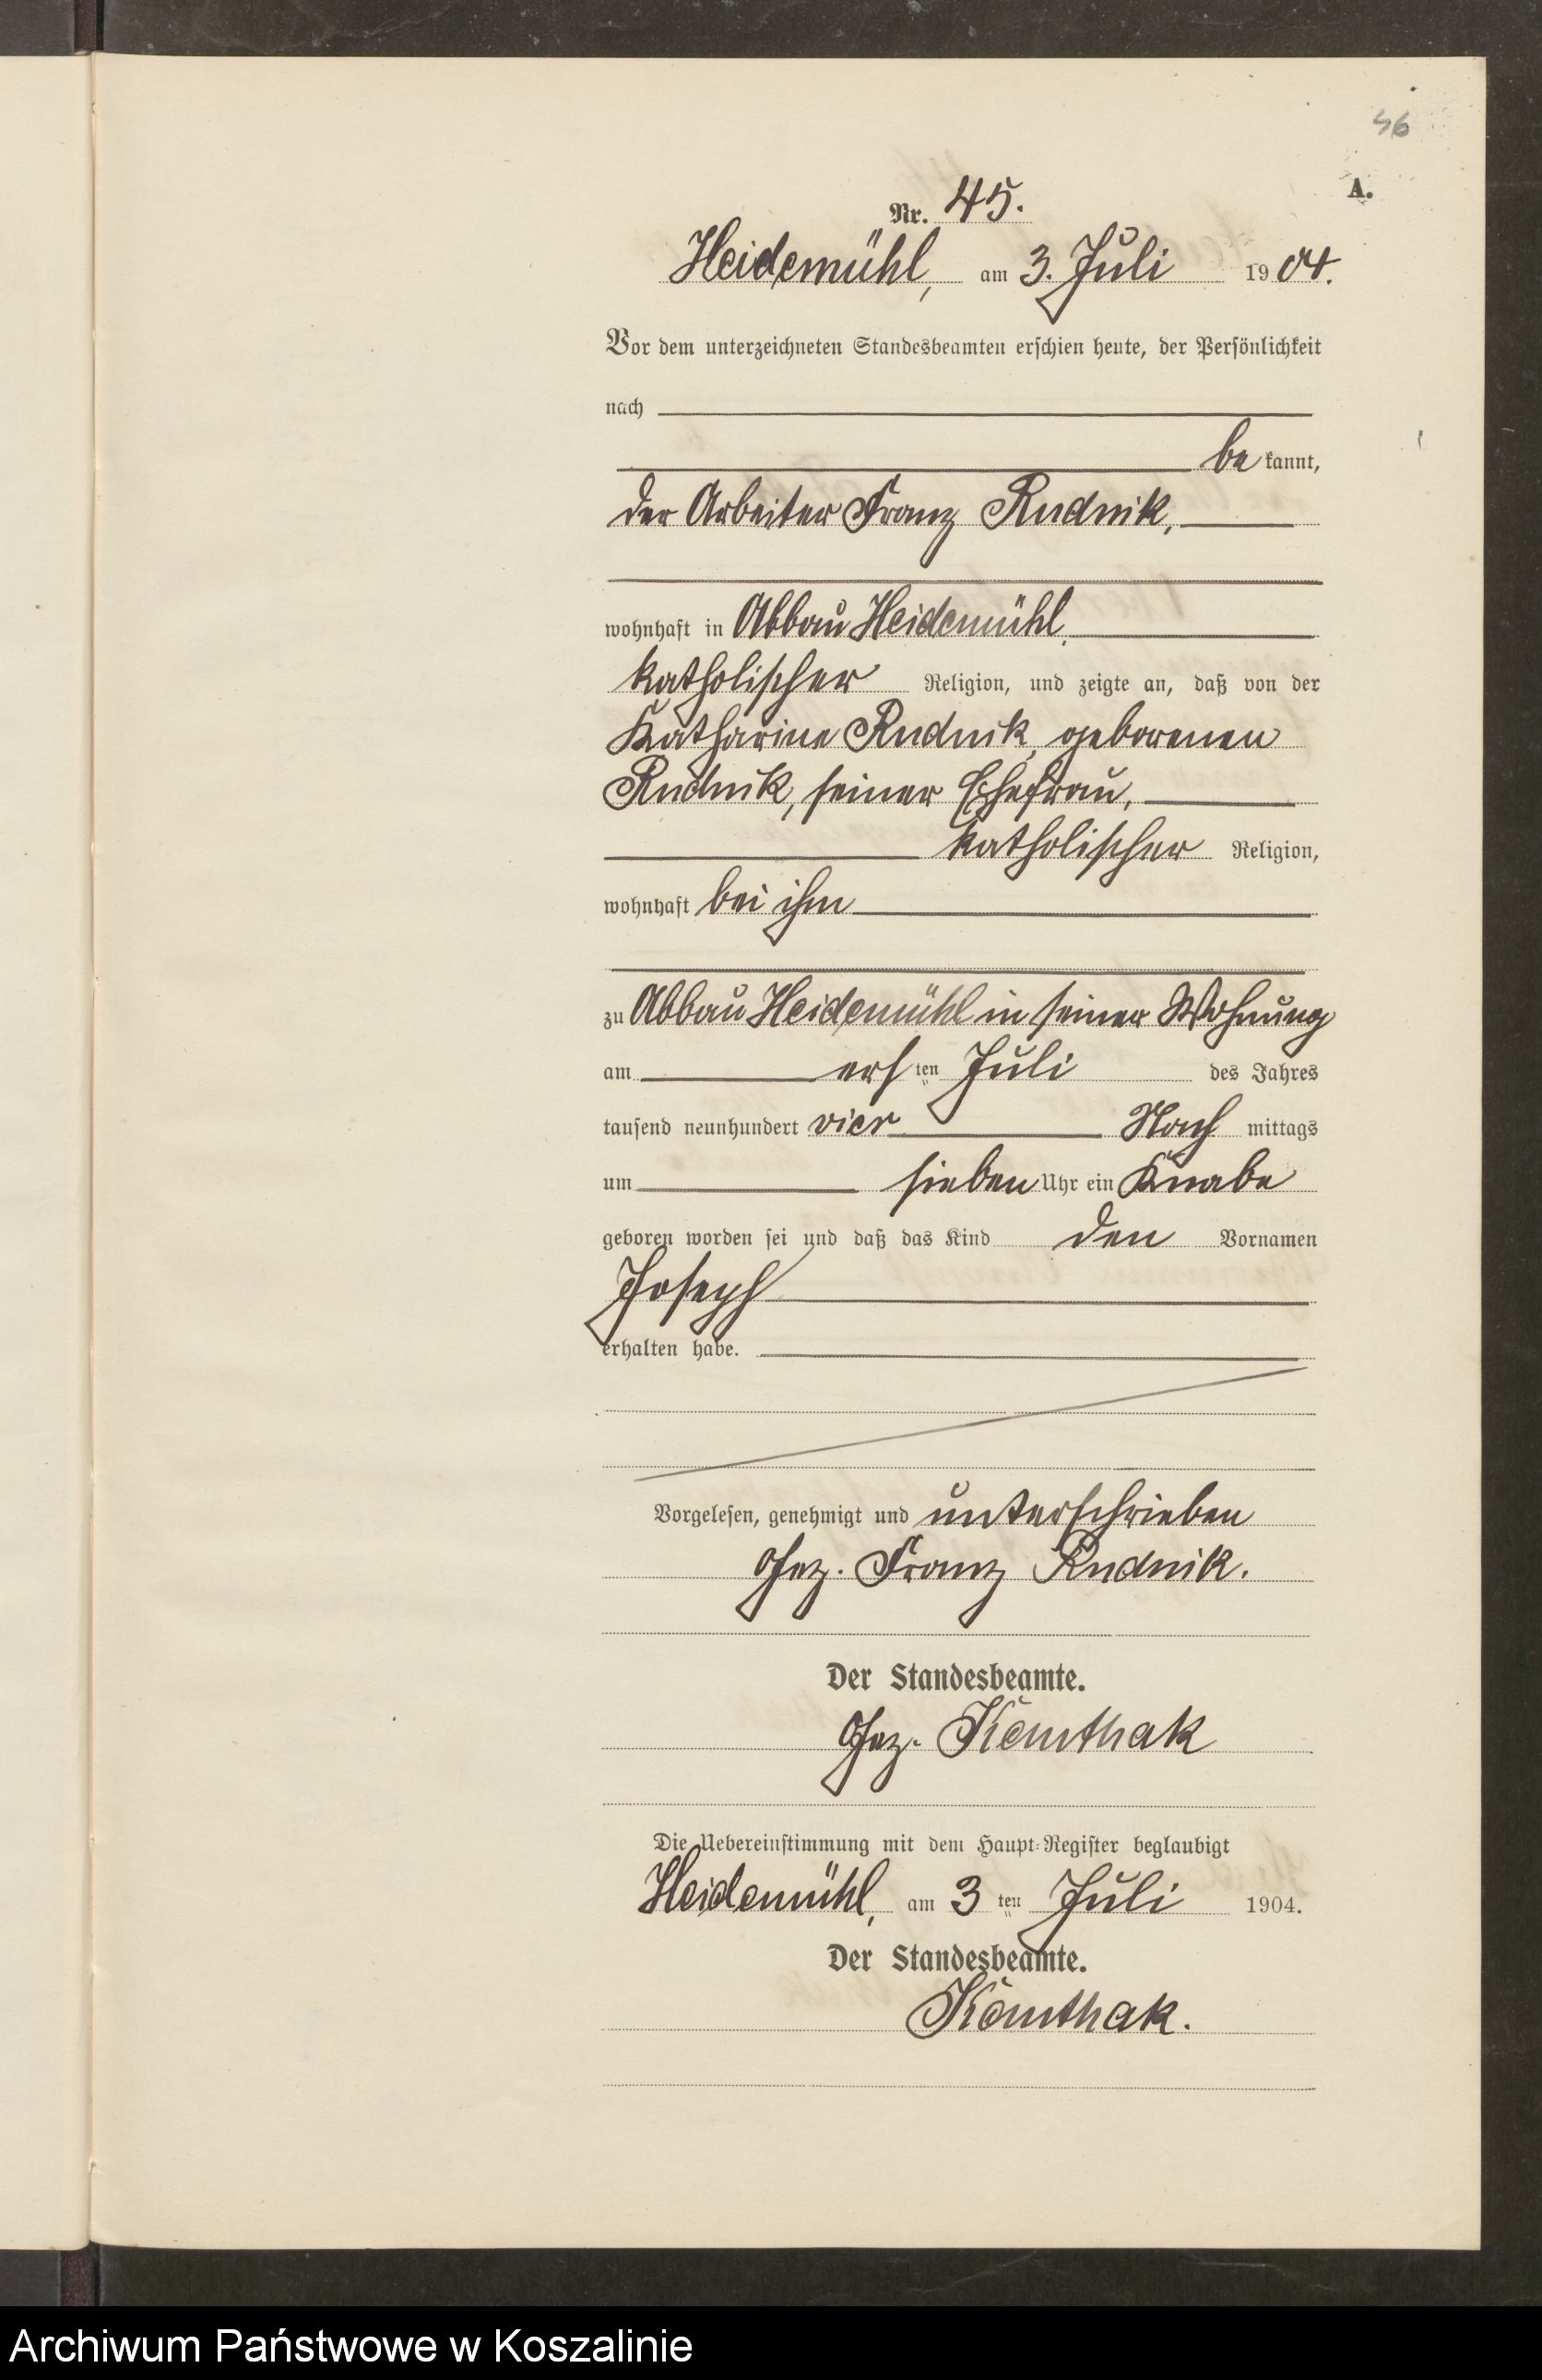 46
A.
Nr. 45.
Heidemühl, am 3. Juli 1904.
Vor dem unterzeichneten Standesbeamten erschien heute, der Persönlichkeit
nach
be kannt,
der Arbeiter Franz Rudnik,
wohnhaft in Abbau Heidemühl,
katholischer Religion, und zeigte an, daß von der
Katharine Rudnik, geborenen
Rudnik, seiner Ehefrau,
katholischer Religion,
wohnhaft bei ihm
zu Abbau Heidemühl in seiner Wohnung
am ersten Juli des Jahres
tausend neunhundert vier Nach mittags
um sieben Uhr ein Knabe
geboren worden sei und daß das Kind den Vornamen
Joseph
erhalten habe.
Vorgelesen, genehmigt und unterschrieben
Gez. Franz Rudnik.
Der Standesbeamte.
Gez.
Die Uebereinstimmung mit dem Haupt-Register beglaubigt
Heidemühl, am 3 ten Juli 1904.
Der Standesbeamte.
Archiwum Państwowe w Koszalinie